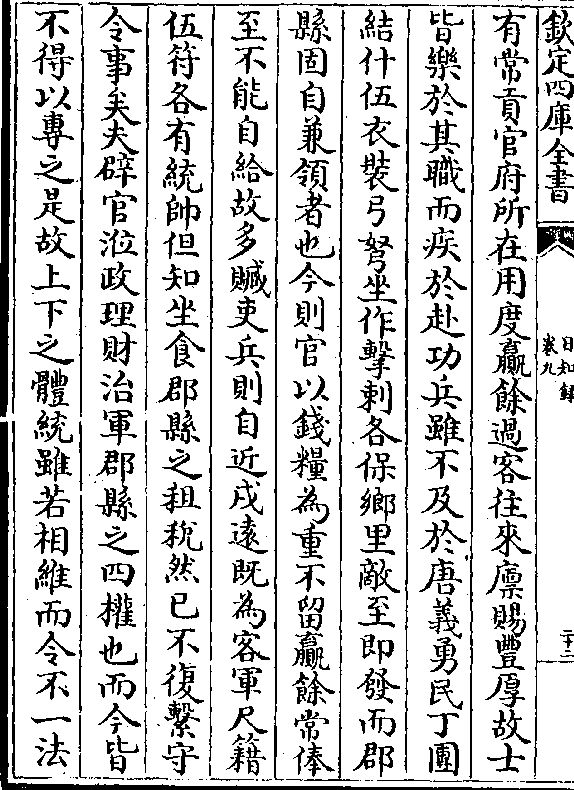 欽定四庫全書
日知錄
卷九
二十二
有常貢官府所在用度贏餘過客往來廪賜豐厚故士
皆樂於其職而疾於赴功兵雖不及於唐義勇民丁團
結什伍衣裝弓弩坐作擊刺各保鄉里敵至即發而郡
縣固自兼領者也今則官以錢糧為重不留贏餘常俸
至不能自給故多贓吏兵則自近戍遠既為客軍尺籍
伍符各有統帥但知坐食郡縣之租稅然已不復繫守
令事矣夫辟官涖政理財治軍郡縣之四權也而今皆
不得以專之是故上下之體統雖若相維而令不一法